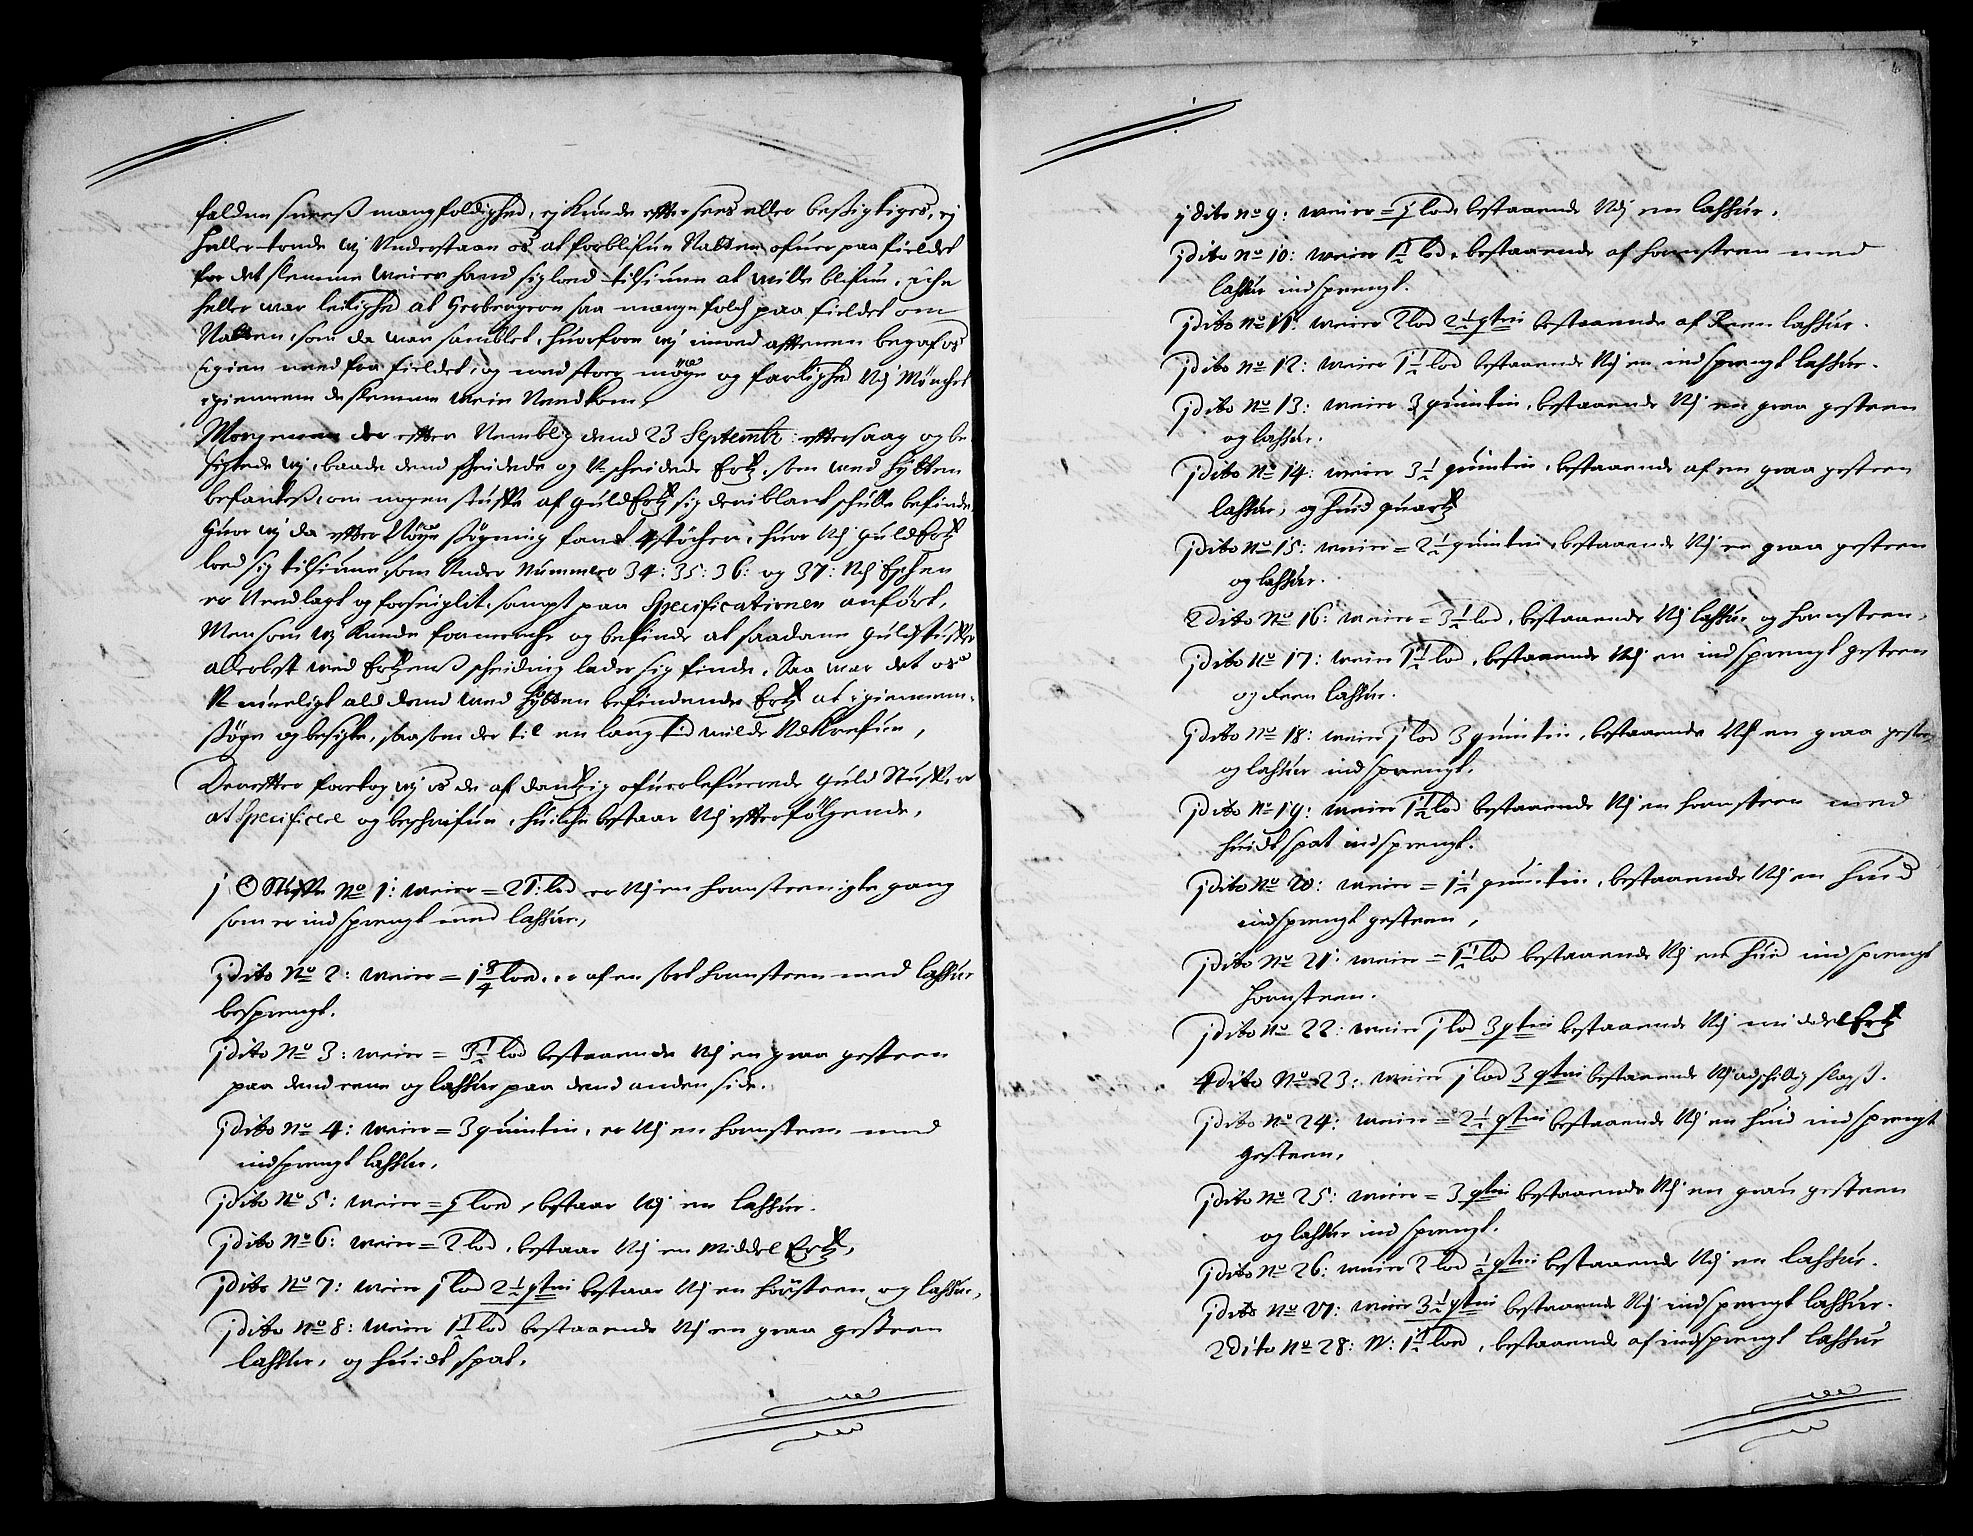 faldne sneeß mangfoldighed, ej kunde efftersees eller besigtiges, ej
heller torde wj understaae os at forblifue Natten ofuer paa fieldet
for det slemme weier hand sig loed tilsiune at wille blifue, iche
heller war leilighed at herbergere saa mange folch paa fieldet om
Natten, som da war samblet, huorfore wj imod afftenen begaf os
igien need fra fieldet, og med stoer møye og farlighed
igiennem de slemme weie Needkom,
Morgenen der effter Nemblig dend 23 Septembr: efftersaag og be
sigtede wj, baade dend scheidede og U-scheidede Ertz, som wed hÿtten
befantes, om nogen stuffe af guldErtz sig deriblant schulle befinde
huor wj da effter støgning fant 4 støcher, huor udj guldErtz
loed sig tilsiune, som Under Nummero 34: 35: 36: og 37: udj Eschen
er Needlagt og forseiglit, sampt paa Specificationen anført,
Men som wj kunde fornemme og befinde at saadane guldstuffer
allerbest wed Ertzens scheiding lader sig finde, Saa war det os
U-mueligt ald dend wed hÿtten befindende Ertz at igiennem
søge og besigte, saasom der til en lang tid wilde Udkrefue,
Dereffter foretog wj os de af Dantzig ofuerlefuerede guld Stuffer
at Specificere og beschrifue, huilche bestaar udj effterfølgende,
j ☉ Stuffe No 1: weier = 21: lod er udj en hornsteenigte gang
som er indsprengt med lassur,
j dito No 2: weier = 1 3/4 loed, er af en sort hornsteen med lassur
besprengt.
j dito No 3: weier = 3 1/2 lod bestaaende udj en graa gesteen
paa dend eene og lassur paa dend anden side.
j dito No 4: weier = 3 quintin, er udj en hornsteen med
indsprengt lassur,
j dito No 5: weier = j loed, bestaar udj en lassur.
j dito No 6: weier = 2 lod, bestaar udj en Middel Ertz,
j dito No 7: weier j lod 2 1/2 qtin bestaar udj en hornsteen og lassur,
j dito No 8: weier 1 1/2 lod bestaaende udj en graa gesteen
lassur, og huidt spat,
j dito No 9: weier = j lod, bestaaende udj en lassur,
j dito No 10: weier 1 1/2 lod, bestaaende af hornsteen med
lassur indsprengt.
j dito No 11: weier 2 lod 2 1/2 qtin bestaaende af Reen lassur.
j dito No 12: weier 1 1/2 lod bestaaende udj en indsprengt lassur.
j dito No 13: weier 3 quintin, bestaaende udj en graa gesteen
og lassur.
j dito No 14: weier 3 1/2 quintin, bestaaende af en graa gesteen
lassur, og huid quartz
j dito No 15: weier = 2 1/2 quintin, bestaaende udj en graa gesteen
og lassur.
2 dito No 16: weier = 3 1/2 lod, bestaaende udj lassur og hornsteen,
j dito No 17: weier 1 1/2 lod, bestaaende udj en indsprengt gesteen
og Reen lassur.
j dito No 18: weier j lod 3 quintin, bestaaende udj en graa gesteen
og lassur indsprengt.
j dito No 19: weier 1 1/2 lod bestaaende udj en hornsteen med
huidt spat indsprengt.
j dito No 20: weier = 1 1/2 quintin, bestaaende udj en huid
indsprengt gesteen,
j dito No 21: weier = 1 1/2 lod bestaaende udj en huid indsprengt
hornsteen.
j dito No 22: weier j lod 3 qtin bestaaende udj middel Ertz
4 dito No 23: weier j lod 3 qtin bestaaende udj adschillig slags.
j dito No 24: weier = 2 1/2 qtin bestaaende udj en huid indsprengt
gesteen,
j dito No 25: weier = 3 qtin bestaaende udj en graa gesteen
og lassur indsprengt.
j dito No 26: weier 2 lod 1/2 qtin bestaaende udj en lassur.
j dito No 27: weier 3 1/2 qtin bestaaende udj indsprengt lassur.
2 dito No 28: W: 1 1/2 loed, bestaaende af indsprengt lassur